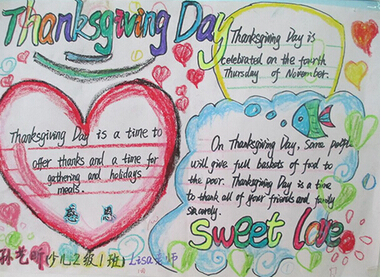 Thanksgiving Day
Thanksgiving Day is
celebrated on the fourth
Thursday of November.
Thanksgiving Day is a time to
offer thanks and a time for
gathering and holidays
meals.
感 恩
On Thanksgiving Day, some people
will give full baskets of food to
the poor. Thanksgiving Day is a time
to thank all of your friends and family
sincerely.
Sweet Love
(少儿2级1班) Lisa老师